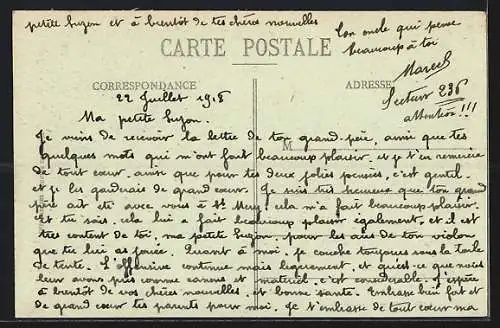 petite Suzon et à bientôt de tes chères nouvelles
Ton oncle qui pense
beaucoup à toi
Marcel
Secteur 236
attention!!!
CARTE POSTALE
CORRESPONDANCE
ADRESSE
22 Juillet 1918
Ma petite Suzon.
Je viens de recevoir la lettre de ton grand-père, ainsi que tes
M
quelques mots qui m'ont fait beaucoup plaisir. et je t'en remercie
de tout cœur. ainsi que pour tes deux jolies pensées, c'est gentil.
et je les garderais de grand cœur. Je suis très heureux que ton grand
père ait été avec vous à St cela m'a fait beaucoup plaisir.
Et tu sais, cela lui a fait beaucoup plaisir également, et il est
très content de toi, ma petite Suzon. pour les airs de ton violon
que tu lui as jouée. Quant à moi, je couche toujours sous la toile
de tente. L'offensive continue mais lentement, et qu'est-ce que nous
leur avons pris comme canons et matériel. c'est considérable. J'espère
à bientôt de vos chères nouvelles, et bonne santé. Embrasse bien fort et
de grand cœur tes parents pour moi. Je t'embrasse de tout cœur ma